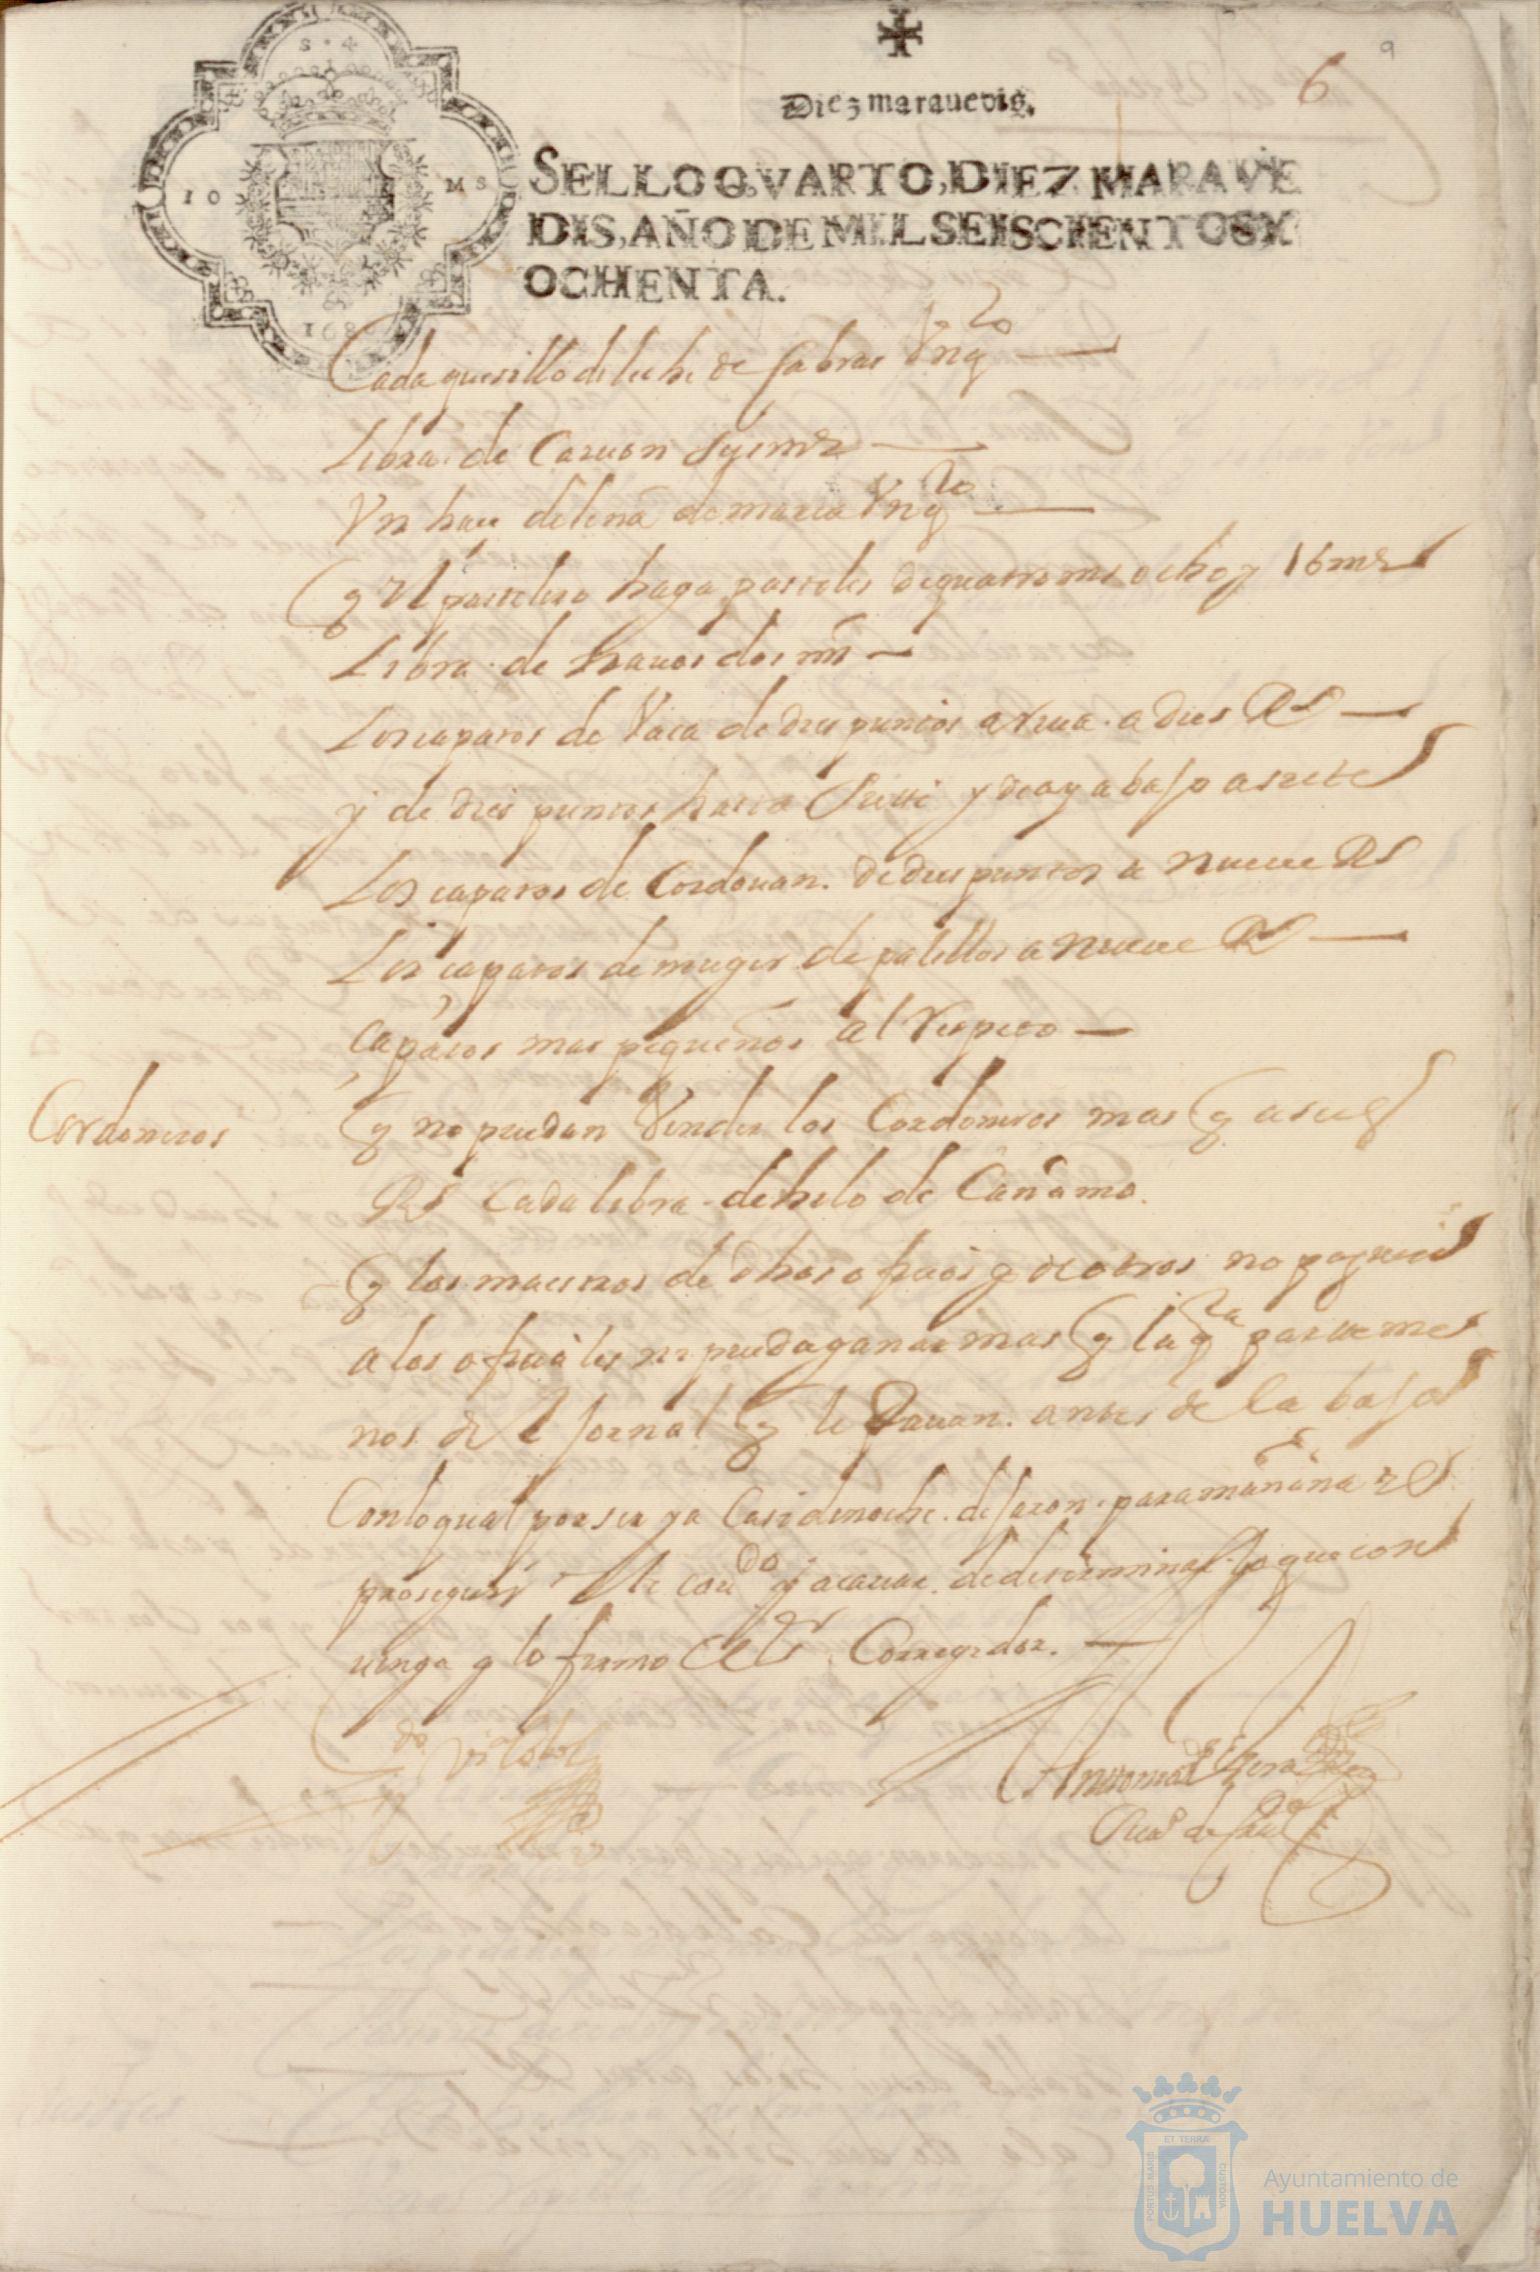 9
6
Diez marauedis.
SELLO QVARTO, DIEZ MARAVE
DIS, AÑO DE MIL SEISCIENTOS Y
OCHENTA.
S 4
10 MS
1680
Cada quesillo de leche de cabras Un qto
Libra de Caruon Syemrs
Un haz de leña de maria Un qto
q el pastelero haga pasteles de quatro mrs ocho y 16 mrs
Libra de Nauos dos mrs
Los capatos de Vaca de dies puntos arriua a dies Rs
y de dies puntos hasta Seis y de ay abajo a siete
Los capatos de Cordouan de dies puntos a nueue Rs
Los capatos de muger de palillos a nueue Rs
Capatos mas pequeños al respeto
Cordoneros
q no puedan Vender los Cordoneros mas q a seis
Rs Cada libra de hilo de Cañamo
q los maestros de dhos ofiçios y de otros no paguen
a los ofiçiales ni pueda ganar mas q la qta parte me
nos del Jornal q le dauan antes de la baja
Con lo qual por ser ya Casi de noche dejaron para mañana el
proseguir este caudo y acauar de determinar lo que con
uenga y lo firmo el Sr Corregidor
Antonio de